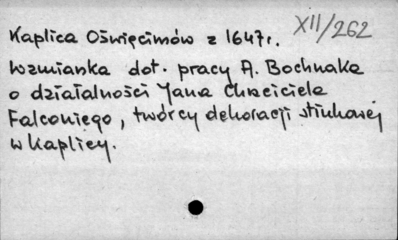 Kaplica Oświęcimów z 1647r. XII/262
Wzmianka dot. pracy A. Bochnaka
o działalności Jana Chrzciciela
Falconiego, twórcy dekoracji stiukowej
w kaplicy.